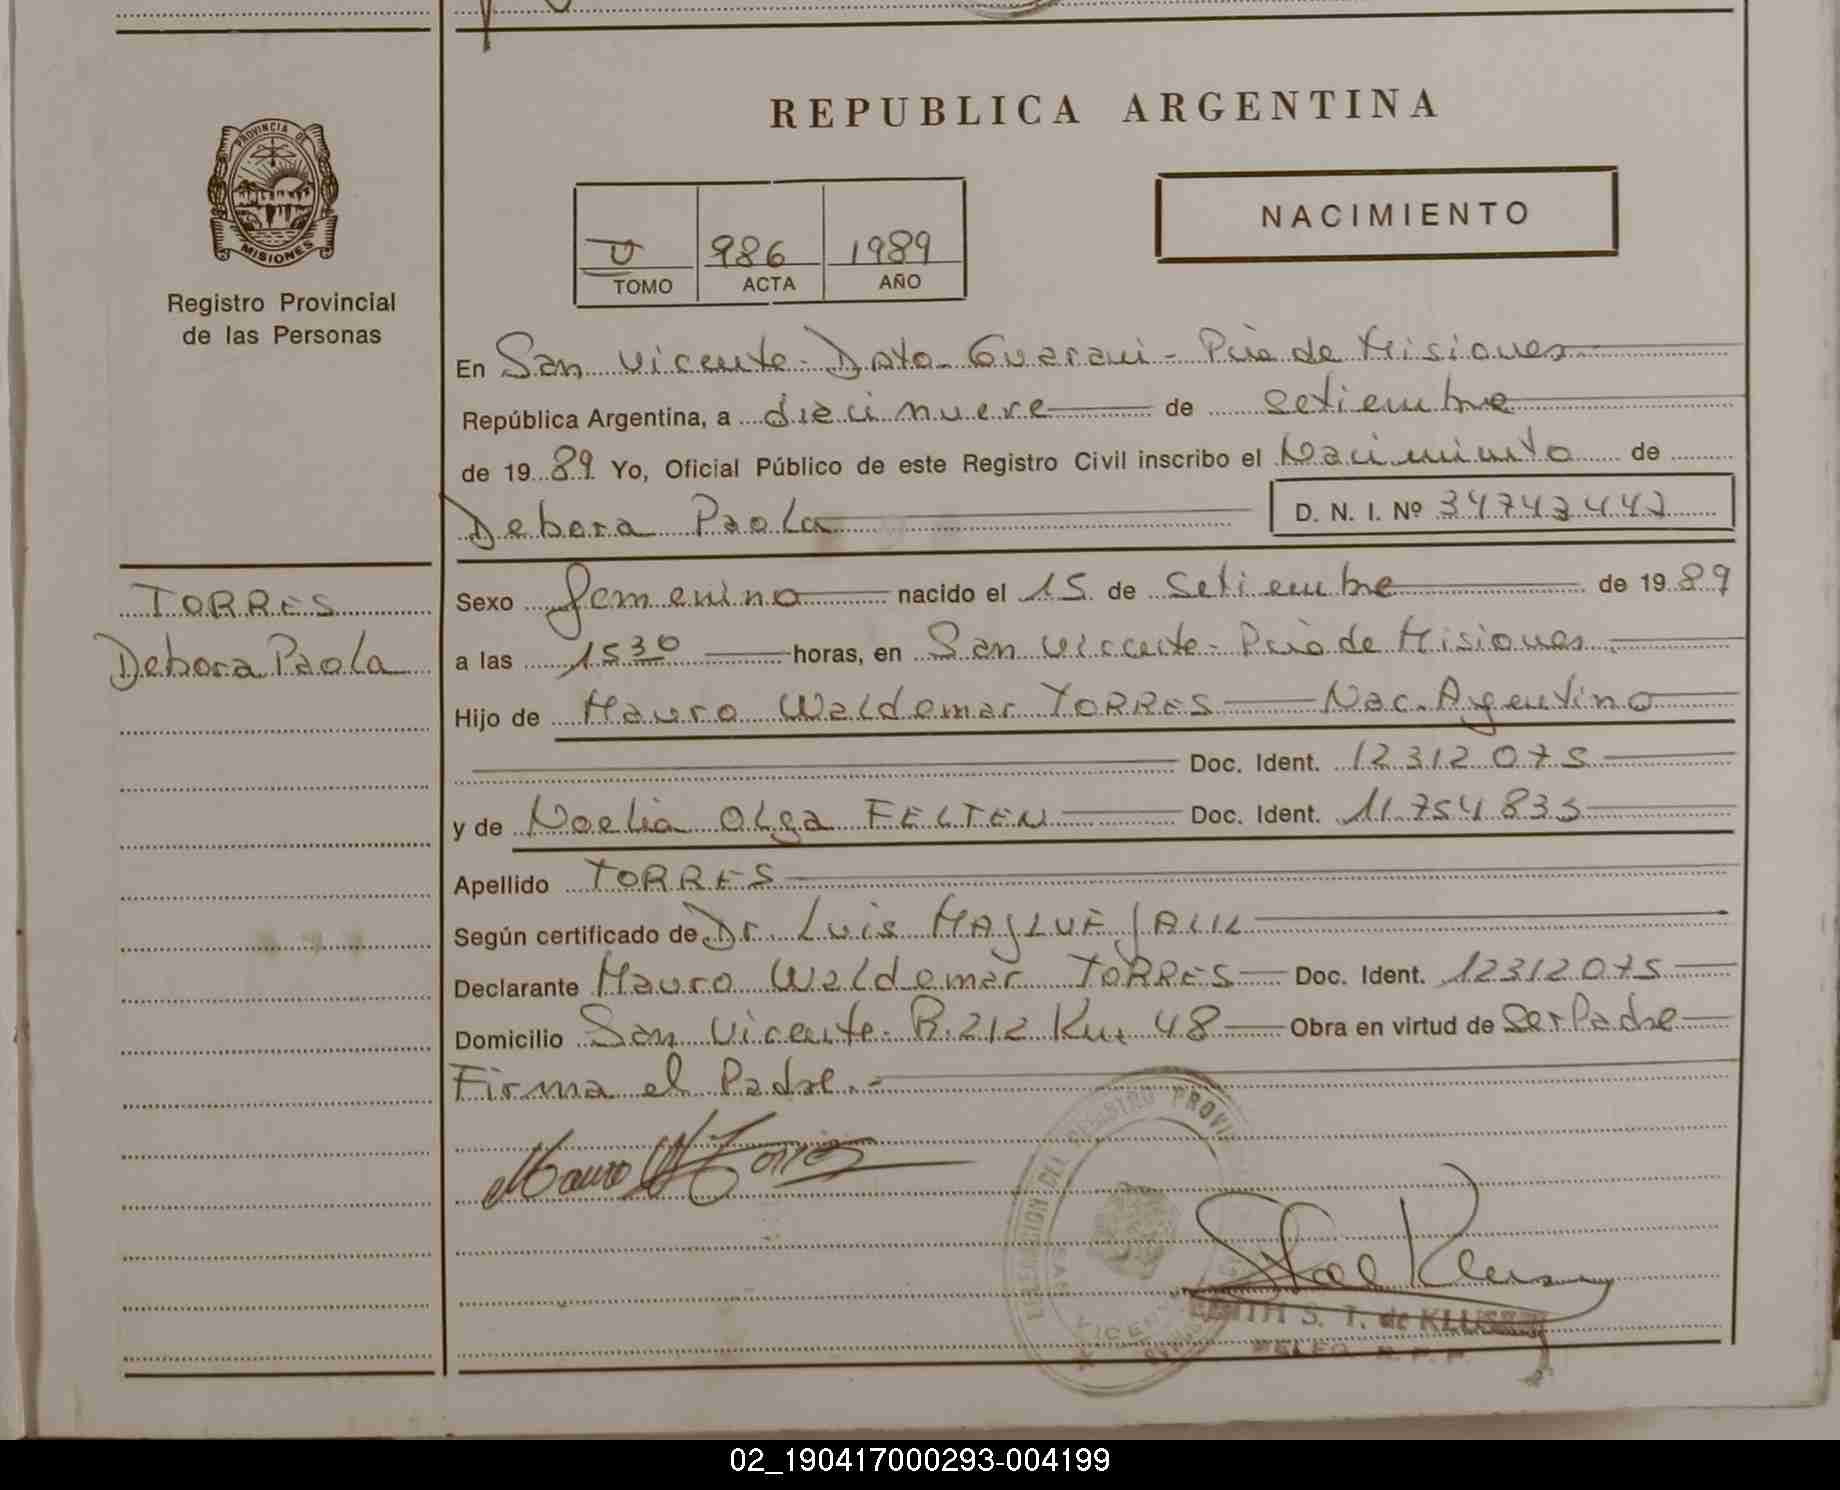 PROVINCIA DE
MISIONES
Registro Provincial
de las Personas
TORRES
Debora Paola
REPUBLICA ARGENTINA
NACIMIENTO
U 986 1989
TOMO ACTA AÑO
En San Vicente - Dpto. Guarani - Pcia de Misiones
República Argentina, a diecinueve de setiembre
de 1989 Yo, Oficial Público de este Registro Civil inscribo el Nacimiento de
Debora Paola D. N. I. Nº 34743442
Sexo femenino nacido el 15 de setiembre de 1989
a las 1530 horas, en San Vicente - Pcia de Misiones
Hijo de Mauro Waldemar TORRES Nac. Argentino
Doc. Ident. 12312075
y de Noelia Olga FELTEN Doc. Ident. 11.754.835
Apellido TORRES
Según certificado de Dr. Luis JALIL
Declarante Mauro Waldemar TORRES Doc. Ident. 12312075
Domicilio San Vicente - R. 212 Km 48 Obra en virtud de Ser Padre
Firma el Padre. -
Mauro W Torres
DEL REGISTRO PROVI
VICEN
S. T. de KLUSE
02_190417000293-004199